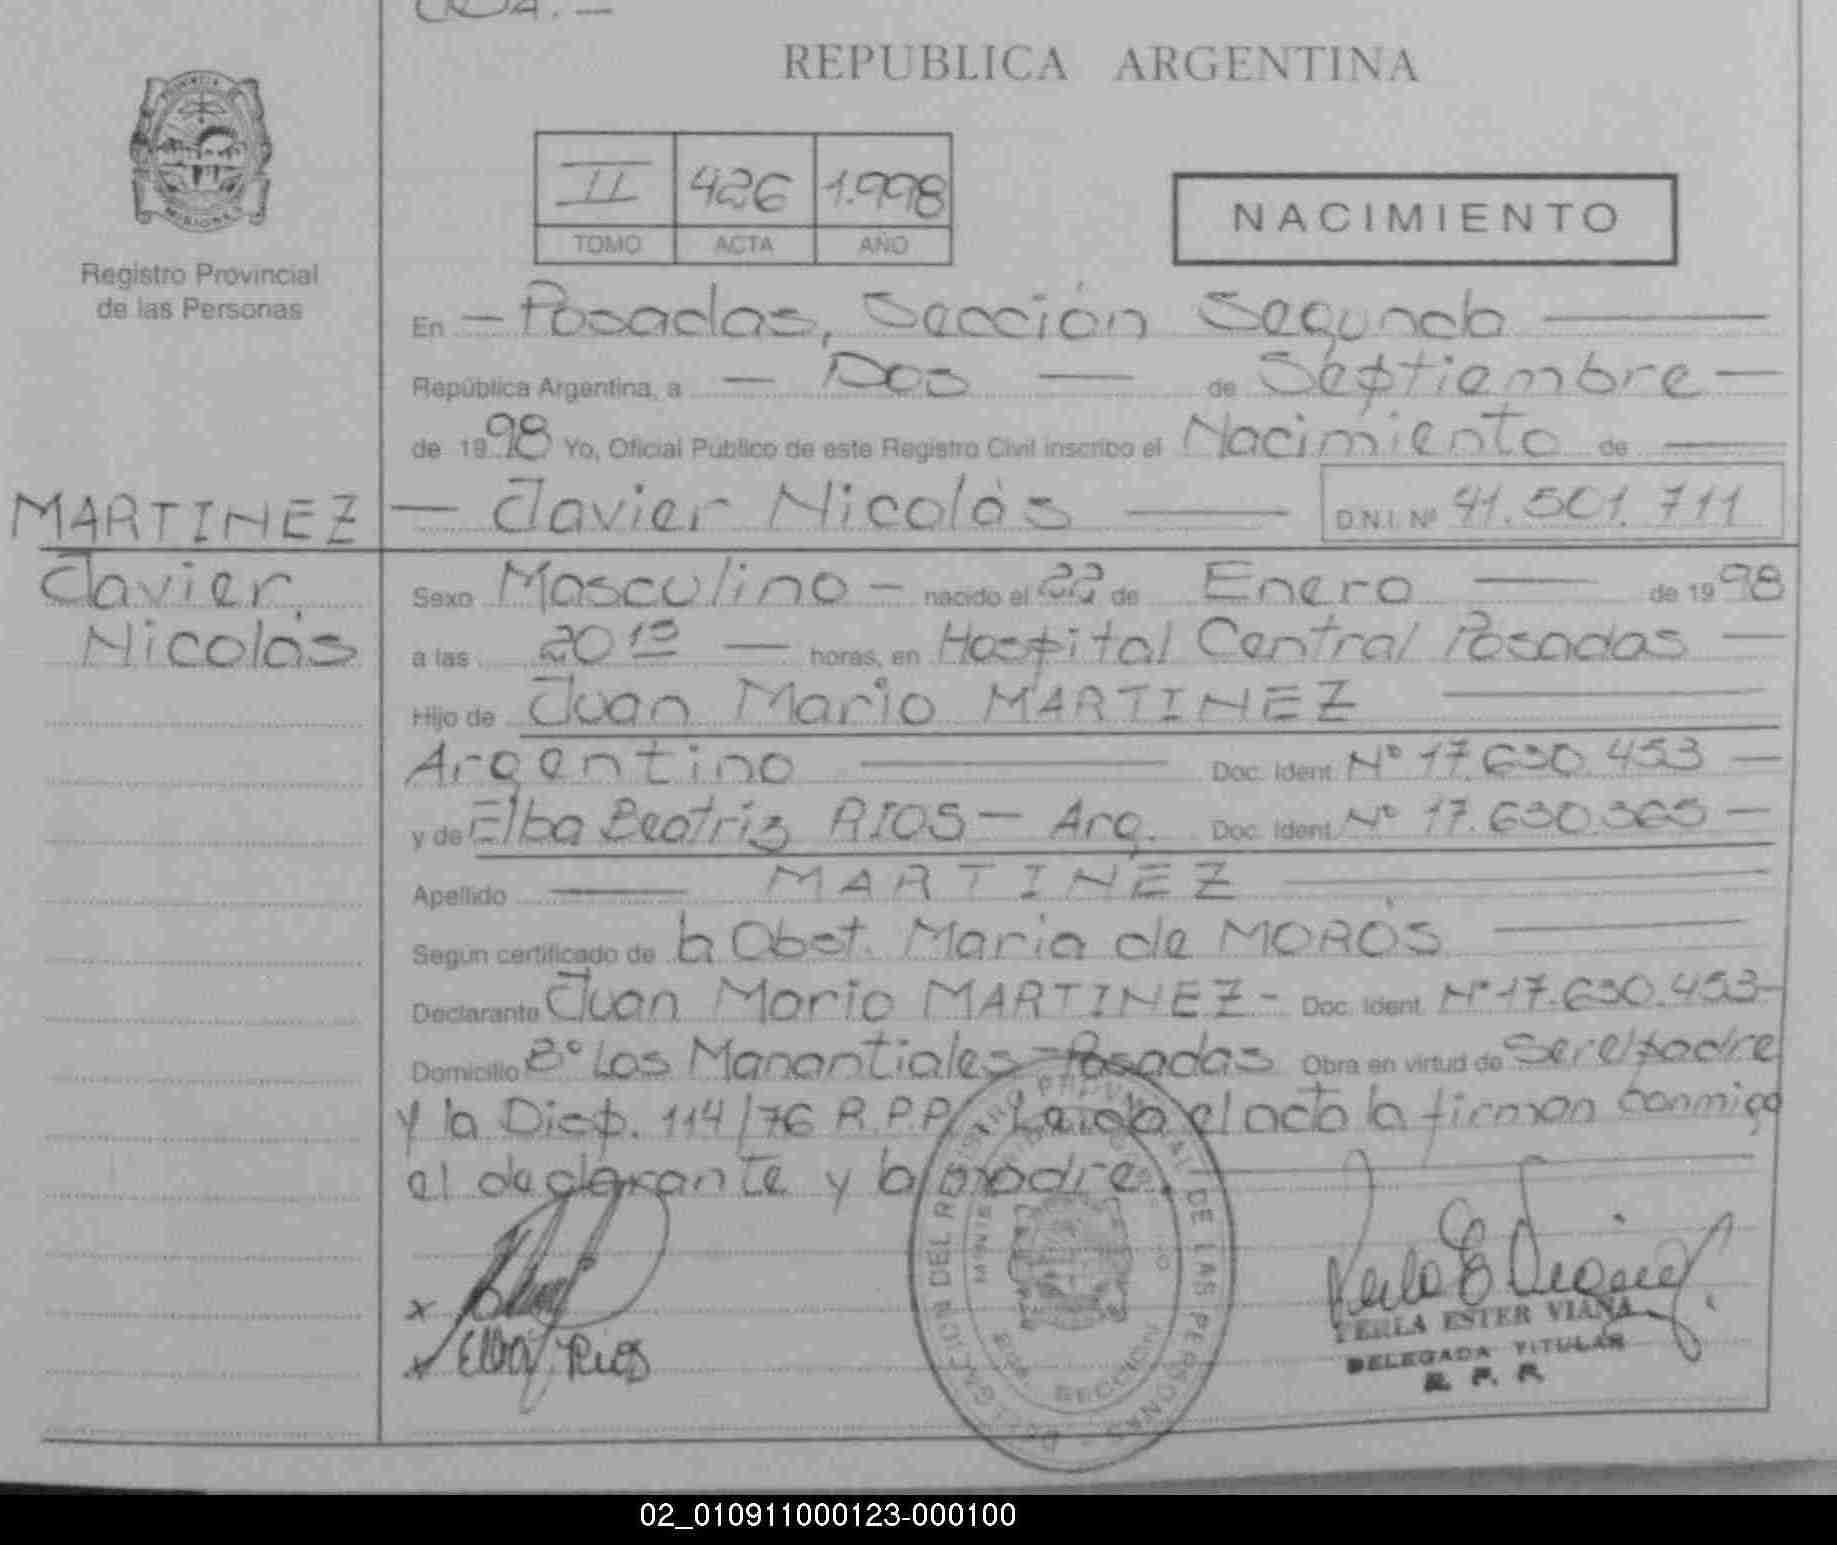 REPUBLICA ARGENTINA
PROVINCIA
MISIONES
Registro Provincial
de las Personas
II 426 1.998
TOMO ACTA AÑO
NACIMIENTO
En — Posadas, Sección Segunda —
República Argentina, a — Dos — de Septiembre —
de 1998 Yo, Oficial Público de este Registro Civil inscribo el Nacimiento de —
MARTINEZ
Javier
Nicolás
— Javier Nicolás — D.N.I. Nº 41.501.711
Sexo Masculino — nacido el 22 de Enero — de 1998
a las 20 15 — horas, en Hospital Central Posadas —
Hijo de Juan Mario MARTINEZ —
Argentino — Doc. Ident. Nº 17.630.453 —
y de Elba Beatriz RIOS — Arg. Doc. Ident. Nº 17.630.365 —
Apellido — MARTINEZ —
Según certificado de la Obst. Maria de MOROS —
Declarante Juan Mario MARTINEZ - Doc. Ident. Nº 17.630.453 -
Domicilio Bº Los Manantiales - Posadas Obra en virtud de Ser el padre
y la Disp. 114/76 R.P.P. Leida el acta la firman conmigo
el declarante y la madre. —
x
x Elba Rios
DELEGACION DEL REGISTRO PROVINCIAL DE LAS PERSONAS
SECCION
PERLA ESTER VIANA
DELEGADA TITULAR
R. P. P.
02_010911000123-000100